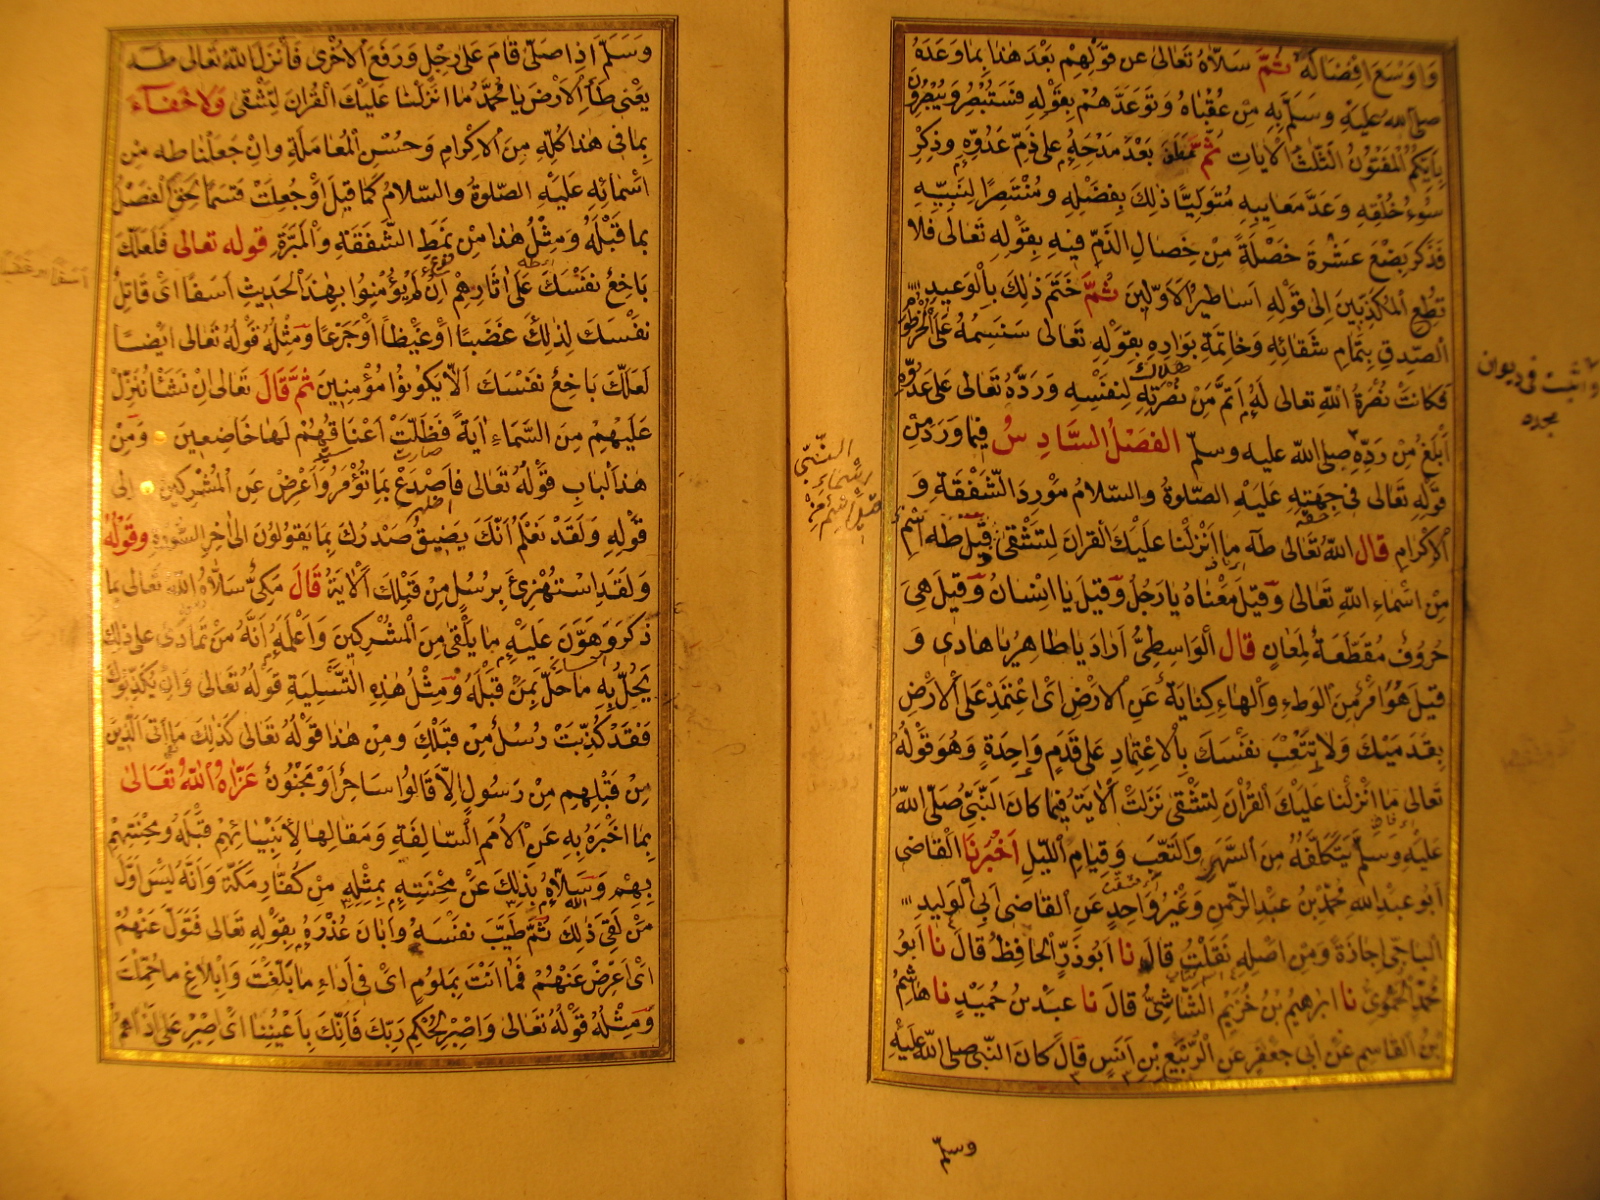 وَاَوْسَعَ اِفْضَالَهُ ثُمَّ سَلَّاهُ تَعَالٰى عَنْ قَوْلِهِمْ بَعْدَ هٰذَا بِمَا وَعَدَهُ
صلى الله عَلَيْهِ وَسَلَّمَ بِهِ مِنْ عُقْبَاهُ وَتَوَعَّدَهُمْ بِقَوْلِهِ فَسَتُبْصِرُ وَيُبْصِرُونَ
بِاَيِّكُمُ الْمَفْتُونُ الثَّلٰثَ الْاٰيَاتِ ثُمَّ عَطَفَ بَعْدَ مَدْحِهِ عَلٰى ذَمِّ عَدُوِّهِ وَذِكْرِ
سُوءِ خُلُقِهِ وَعَدَّ مَعَايِبِهِ مُتَوَلِّيًا ذٰلِكَ بِفَضْلِهِ وَمُنْتَصِرًا لِنَبِيِّهِ
فَذَكَرَ بِضْعَ عَشْرَةَ خَصْلَةً مِنْ خِصَالِ الذَّمِّ فِيهِ بِقَوْلِهِ تَعَالٰى فَلَا
تُطِعِ الْمُكَذِّبِينَ اِلٰى قَوْلِهِ اَسَاطِيرُ الْاَوَّلِينَ ثُمَّ خَتَمَ ذٰلِكَ بِالْوَعِيدِ
الصِّدْقِ بِتَمَامِ شَقَائِهِ وَخَاتِمَةِ بَوَارِهِ بِقَوْلِهِ تَعَالٰى سَنَسِمُهُ عَلَى الْخُرْطُومِ
هلاك
فَكَانَتْ نُصْرَةُ اللّٰهِ تعالى لَهُ اَتَمَّ مِنْ نُصْرَتِهِ لِنَفْسِهِ وَرَدُّهُ تَعَالٰى عَلٰى عَدُوِّهِ
اَبْلَغُ مِنْ رَدِّهِ صلى الله عليه وسلم الفَصْلُ السَّادِسُ فِيمَا وَرَدَ مِنْ
قَوْلِهِ تَعَالٰى فِي جِهَتِهِ عَلَيْهِ الصَّلٰوةُ وَالسَّلَامُ مَوْرِدَ الشَّفَقَةِ وَ
الْاِكْرَامِ قَالَ اللّٰهُ تَعَالٰى طٰهٰ مَا اَنْزَلْنَا عَلَيْكَ الْقُرْاٰنَ لِتَشْقٰى قِيلَ طٰهٰ اسْمٌ
مِنْ اَسْمَاءِ اللّٰهِ تَعَالٰى وَقِيلَ مَعْنَاهُ يَا رَجُلُ وَقِيلَ يَا اِنْسَانُ وَقِيلَ هِيَ
حُرُوفٌ مُقَطَّعَةٌ لِمَعَانٍ قَالَ الْوَاسِطِيُّ اَرَادَ يَا طَاهِرُ يَا هَادِي وَ
قِيلَ هُوَ اَمْرٌ مِنَ الْوَطْءِ وَالْهَاءِ كِنَايَةٌ عَنِ الْاَرْضِ اَيْ اِعْتَمِدْ عَلَى الْاَرْضِ
بِقَدَمَيْكَ وَلَا تُتْعِبْ نَفْسَكَ بِالْاِعْتِمَادِ عَلٰى قَدَمٍ وَاحِدَةٍ وَهُوَ قَوْلُهُ
تَعَالٰى مَا اَنْزَلْنَا عَلَيْكَ الْقُرْاٰنَ لِتَشْقٰى نَزَلَتْ الْاٰيَةُ فِيمَا كَانَ النَّبِيُّ صَلَّى اللّٰهُ
عَلَيْهِ وَسَلَّمَ يَتَكَلَّفُهُ مِنَ السَّهَرِ وَالتَّعَبِ وَقِيَامِ اللَّيْلِ اَخْبَرَنَا الْقَاضِي
اَبُو عَبْدِ اللّٰهِ مُحَمَّدُ بْنُ عَبْدِ الرَّحْمٰنِ وَغَيْرُ وَاحِدٍ عَنِ الْقَاضِي اَبِي الْوَلِيدِ
الْبَاجِي اِجَازَةً وَمِنْ اَصْلِهِ نَقَلْتُ قَالَ نَا اَبُو ذَرٍّ الْحَافِظُ قَالَ نَا اَبُو
مُحَمَّدٍ الْحَمَوِيُّ نَا اِبْرٰهِيمُ بْنُ خُزَيْمٍ الشَّاشِيُّ قَالَ نَا عَبْدُ بْنُ حُمَيْدٍ نَا هَاشِمُ
بْنُ الْقَاسِمِ عَنْ اَبِي جَعْفَرٍ عَنِ الرَّبِيعِ بْنِ اَنَسٍ قَالَ كَانَ النَّبِيُّ صلى اللّٰه عَلَيْهِ
وسلم
وَسَلَّمَ اِذَا صَلَّى قَامَ عَلٰى رِجْلٍ وَرَفَعَ الْاُخْرٰى فَاَنْزَلَ اللّٰهُ تَعَالٰى طٰهٰ
يَعْنِي طَأِ الْاَرْضَ يَا مُحَمَّدُ مَا اَنْزَلْنَا عَلَيْكَ الْقُرْاٰنَ لِتَشْقٰى وَلَا خَفَاءَ
بِمَا فِي هٰذَا كُلِّهِ مِنَ الْاِكْرَامِ وَحُسْنِ الْمُعَامَلَةِ وَاِنْ جَعَلْنَا طٰهٰ مِنْ
اَسْمَائِهِ عَلَيْهِ الصَّلٰوةُ وَالسَّلَامُ كَمَا قِيلَ اَوْ جُعِلَتْ قَسَمًا لَحِقَ الْفَصْلُ
بِمَا قَبْلَهُ وَمِثْلُ هٰذَا مِنْ نَمَطِ الشَّفَقَةِ وَالْمَبَرَّةِ قوله تعالى فَلَعَلَّكَ
بَاخِعٌ نَفْسَكَ عَلٰى اٰثَارِهِمْ اِنْ لَمْ يُؤْمِنُوا بِهٰذَا الْحَدِيثِ اَسَفًا اَيْ قَاتِلٌ
نَفْسَكَ لِذٰلِكَ غَضَبًا اَوْ غَيْظًا اَوْ جَزَعًا وَمِثْلُهُ قَوْلُهُ تَعَالٰى اَيْضًا
لَعَلَّكَ بَاخِعٌ نَفْسَكَ اَلَّا يَكُونُوا مُؤْمِنِينَ ثُمَّ قَالَ تَعَالٰى اِنْ نَشَأْ نُنَزِّلْ
عَلَيْهِمْ مِنَ السَّمَاءِ اٰيَةً فَظَلَّتْ اَعْنَاقُهُمْ لَهَا خَاضِعِينَ وَمِنْ
صارت
هٰذَا الْبَابِ قَوْلُهُ تَعَالٰى فَاصْدَعْ بِمَا تُؤْمَرُ وَاَعْرِضْ عَنِ الْمُشْرِكِينَ اِلٰى
قَوْلِهِ وَلَقَدْ نَعْلَمُ اَنَّكَ يَضِيقُ صَدْرُكَ بِمَا يَقُولُونَ اِلٰى اٰخِرِ السُّورَةِ وَقَوْلُهُ
وَلَقَدِ اسْتُهْزِئَ بِرُسُلٍ مِنْ قَبْلِكَ الْاٰيَةُ قَالَ مَكِّيٌّ سَلَّاهُ اللّٰهُ تَعَالٰى بِمَا
ذَكَرَ وَهَوَّنَ عَلَيْهِ مَا يَلْقٰى مِنَ الْمُشْرِكِينَ وَاَعْلَمَهُ اَنَّهُ مَنْ تَمَادٰى عَلٰى ذٰلِكَ
يَحُلُّ بِهِ مَا حَلَّ بِمَنْ قَبْلَهُ وَمِثْلُ هٰذِهِ التَّسْلِيَةِ قَوْلُهُ تَعَالٰى وَاِنْ يُكَذِّبُوكَ
فَقَدْ كُذِّبَتْ رُسُلٌ مِنْ قَبْلِكَ وَمِنْ هٰذَا قَوْلُهُ تَعَالٰى كَذٰلِكَ مَا اَتَى الَّذِينَ
مِنْ قَبْلِهِمْ مِنْ رَسُولٍ اِلَّا قَالُوا سَاحِرٌ اَوْ مَجْنُونٌ عَزَّاهُ اللّٰهُ تَعَالٰى
بِمَا اَخْبَرَهُ بِهِ عَنِ الْاُمَمِ السَّالِفَةِ وَمَقَالِهَا لِاَنْبِيَائِهِمْ قَبْلَهُ وَمِحْنَتِهِمْ
بِهِمْ وَسَلَّاهُ بِذٰلِكَ عَنْ مِحْنَتِهِ بِمِثْلِهِ مِنْ كُفَّارِ مَكَّةَ وَاَنَّهُ لَيْسَ اَوَّلَ
مَنْ لَقِيَ ذٰلِكَ ثُمَّ طَيَّبَ نَفْسَهُ وَاَبَانَ عُذْرَهُ بِقَوْلِهِ تَعَالٰى فَتَوَلَّ عَنْهُمْ
اَيْ اَعْرِضْ عَنْهُمْ فَمَا اَنْتَ بِمَلُومٍ اَيْ فِي اَدَاءِ مَا بَلَّغْتَ وَاِبْلَاغِ مَا حُمِّلْتَ
وَمِثْلُهُ قَوْلُهُ تَعَالٰى وَاصْبِرْ لِحُكْمِ رَبِّكَ فَاِنَّكَ بِاَعْيُنِنَا اَيْ اصْبِرْ عَلٰى اَذَاهُمْ